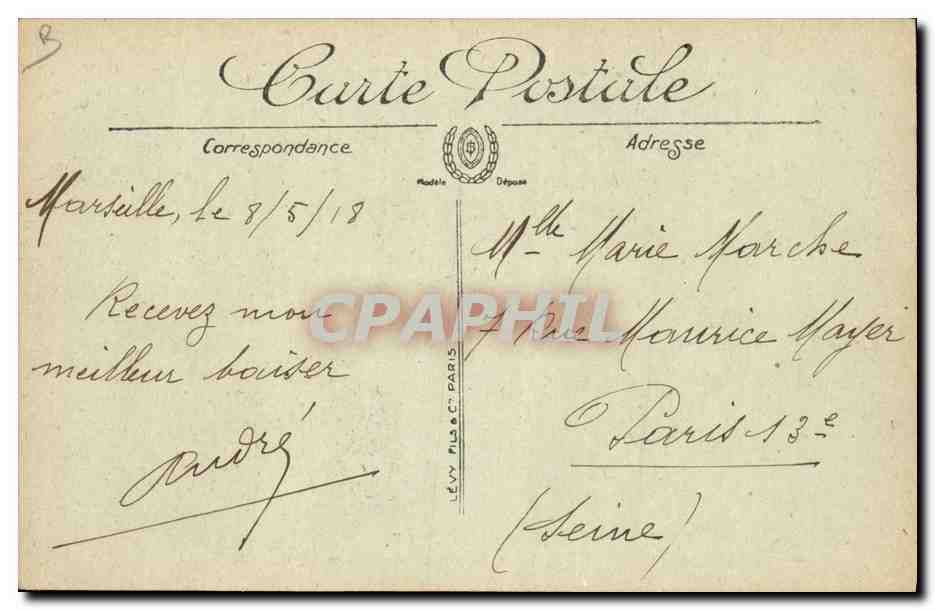 B
Carte Postale
Correspondance
Adresse
Modèle Déposé
Marseille, le 8/5/18
Recevez mon
meilleur baiser
André
LÉVY FILS & Cie PARIS
Mlle Marie Marche
7 Rue Maurice Mayer
Paris 13e
(Seine)
CPAPHIL